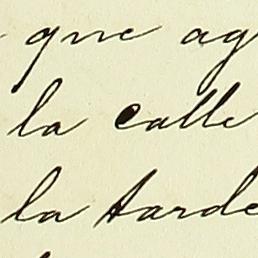 que ag
la calle
la tarde